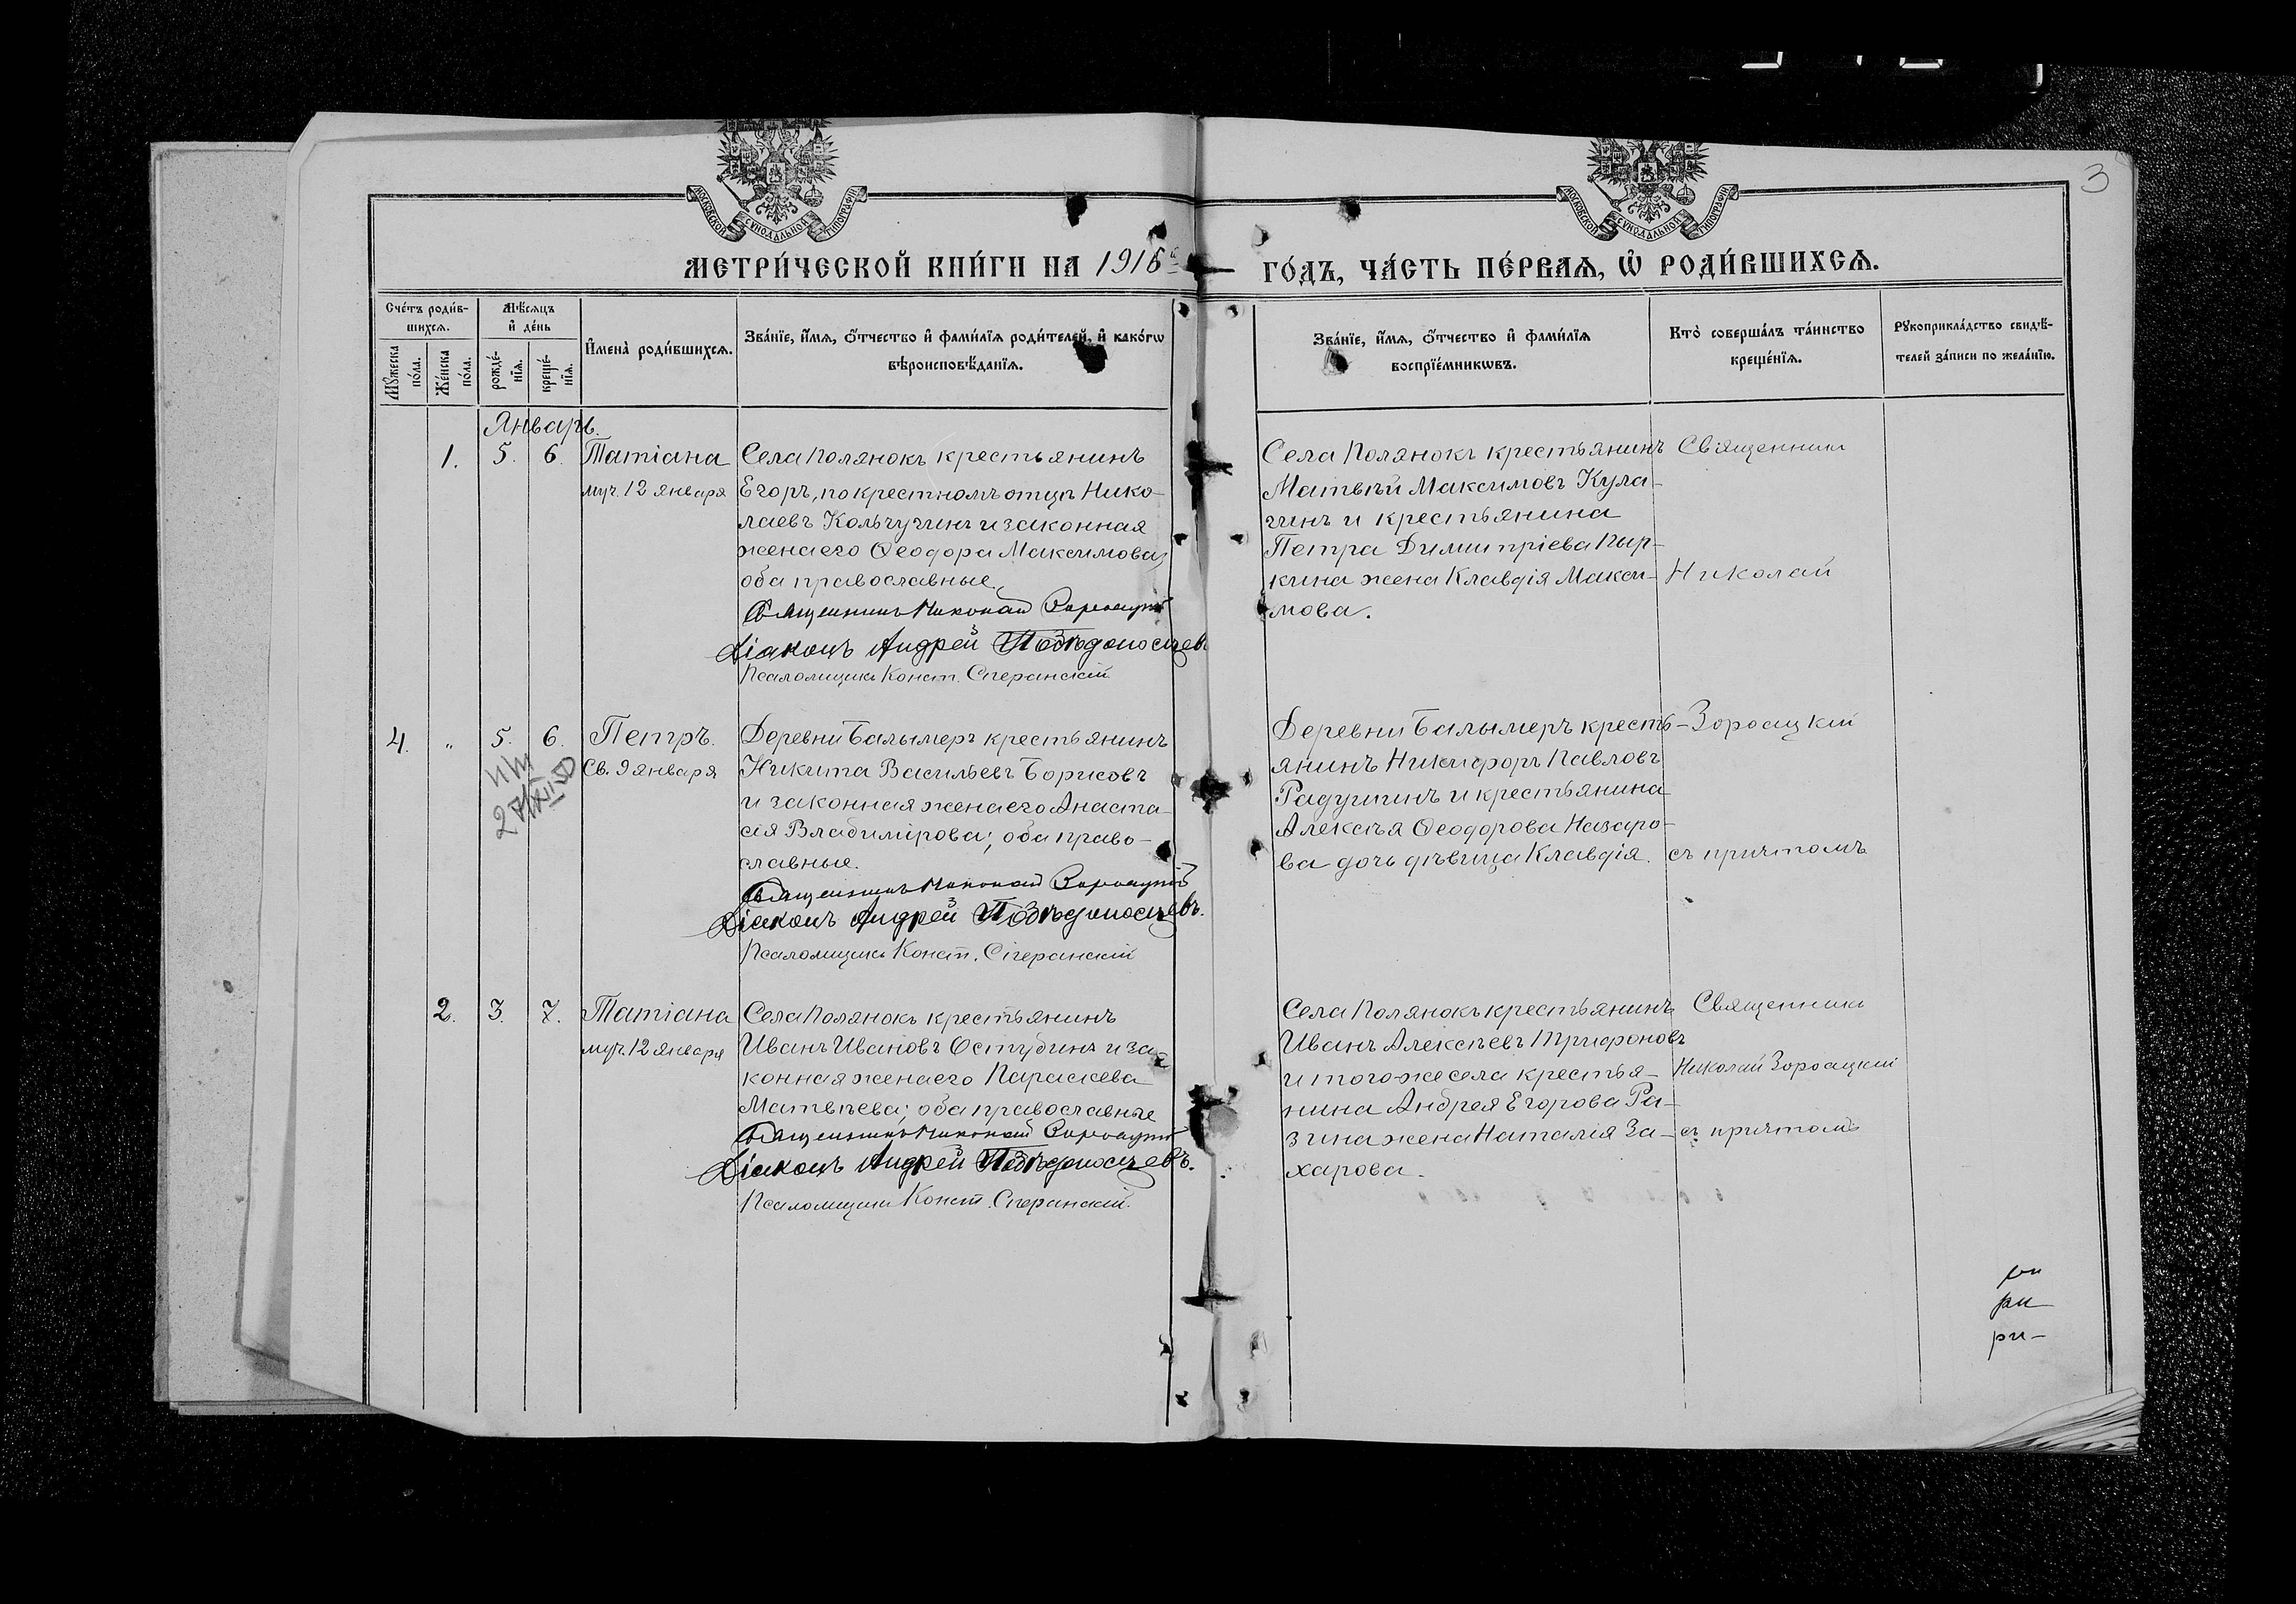 3
МОСКОВСКОЙ СѴНОДАЛЬНОЙ ТИПОГРАФІИ
МОСКОВСКОЙ СѴНОДАЛЬНОЙ ТИПОГРАФІИ
МЕТРИ́ЧЕСКОЙ КНИ́ГИ НА 1916 ГО́ДЪ, ЧА́СТЬ ПЕ́РВАѦ, Ѡ҆ РОДИ́ВШИХСѦ.
Сче́тъ роди́в-
шихсѧ.
Мꙋжеска по́ла.
Же́нска по́ла.
Мѣ́сѧцъ
и҆ де́нь
рожде́-нїѧ.
креще́-нїѧ.
И҆мена̀ роди́вшихсѧ.
Зва́нїе, и҆́мѧ, ѻ҆́тчество и҆ фами́лїѧ роди́телей, и҆ како́гѡ
вѣроисповѣ́данїѧ.
Зва́нїе, и҆́мѧ, ѻ҆́тчество и҆ фами́лїѧ
воспрїе́мникѡвъ.
Кто̀ соверша́лъ та́инство
креще́нїѧ.
Рꙋкоприкла́дство свидѣ́-
телей за́писи по жела́нїю.
Январь.
1. 5. 6. Татіана
муч. 12 января
Села Полянокъ крестьянинъ
Егоръ, по крестномъ отцѣ Нико-
лаевъ Кольчугинъ и законная
жена его Ѳеодора Максимова,
оба православные.
Священникъ Николай Зороацкій
Діаконъ Андрей Побѣдоносцевъ
Псаломщикъ Конст. Сперанскій
Села Полянокъ крестьянинъ
Матвѣй Максимовъ Кула-
гинъ и крестьянина
Петра Димитріева Пыр-
кина жена Клавдія Макси-
мова.
Священникъ
Николай
4. " 5. 6. Петръ.
Св. 9 января
Деревни Балымеръ крестьянинъ
Никита Васильевъ Борисовъ
и законная жена его Анаста-
сія Владимірова; оба право-
славные.
Священникъ Николай Зороацкій
Діаконъ Андрей Побѣдоносцевъ.
Псаломщикъ Конст. Сперанскій
Деревни Балымеръ кресть-
янинъ Никифоръ Павловъ
Радушинъ и крестьянина
Алексѣя Ѳеодорова Назаро-
ва дочь дѣвица Клавдія.
Зороацкій
съ причтомъ
2. 3. 7. Татіана
муч. 12 января
Села Полянокъ крестьянинъ
Иванъ Ивановъ Остудинъ и за-
конная жена его Параскева
Матвѣева; оба православные
Священникъ Николай Зороацкій
Діаконъ Андрей Побѣдоносцевъ.
Псаломщикъ Конст. Сперанскій.
Села Полянокъ крестьянинъ
Иванъ Алексѣевъ Трифоновъ
и того же села крестья-
нина Андрея Егорова Ра-
зина жена Наталія За-
харова.
Священникъ
Николай Зороацкій
съ причтомъ